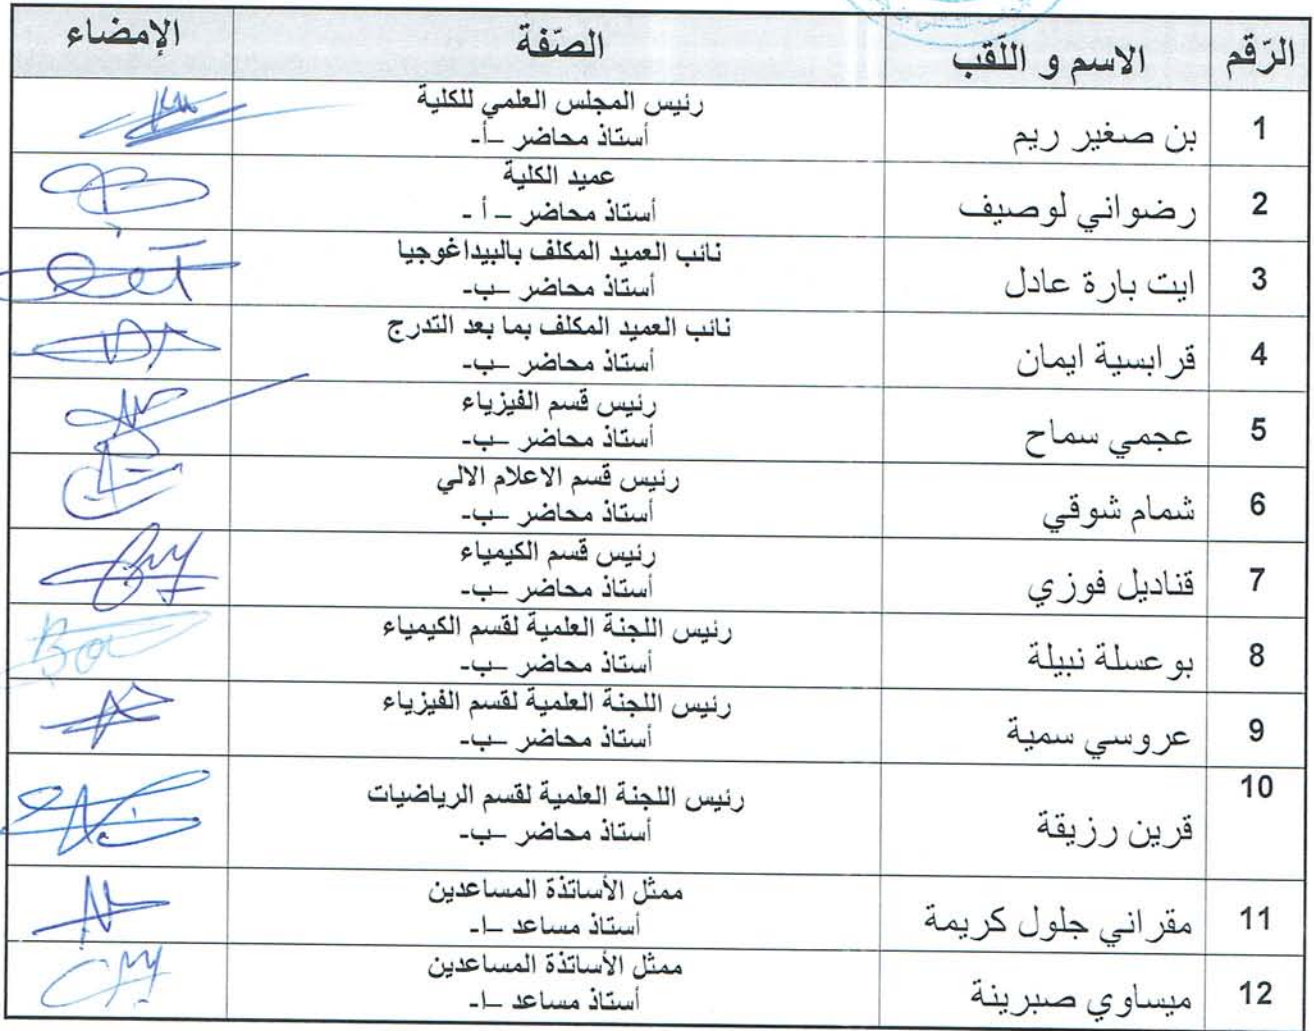 الرقم الاسم و اللقب الصفة الإمضاء
1 بن صغير ريم رئيس المجلس العلمي للكلية
أستاذ محاضر –أ-
2 رضواني لوصيف عميد الكلية
أستاذ محاضر – أ -
3 ايت بارة عادل نائب العميد المكلف بالبيداغوجيا
أستاذ محاضر –ب-
4 قرابسية ايمان نائب العميد المكلف بما بعد التدرج
أستاذ محاضر –ب-
5 عجمي سماح رئيس قسم الفيزياء
أستاذ محاضر –ب-
6 شمام شوقي رئيس قسم الاعلام الالي
أستاذ محاضر –ب-
7 قناديل فوزي رئيس قسم الكيمياء
أستاذ محاضر –ب-
8 بوعسلة نبيلة رئيس اللجنة العلمية لقسم الكيمياء
أستاذ محاضر –ب-
9 عروسي سمية رئيس اللجنة العلمية لقسم الفيزياء
أستاذ محاضر –ب-
10 قرين رزيقة رئيس اللجنة العلمية لقسم الرياضيات
أستاذ محاضر –ب-
11 مقراني جلول كريمة ممثل الأساتذة المساعدين
أستاذ مساعد –ا-
12 ميساوي صبرينة ممثل الأساتذة المساعدين
أستاذ مساعد –ا-